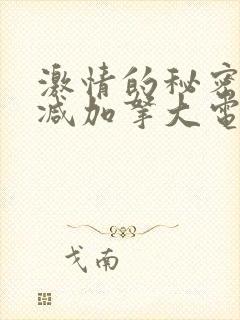 激情的秘密
减加拿大电
戈南